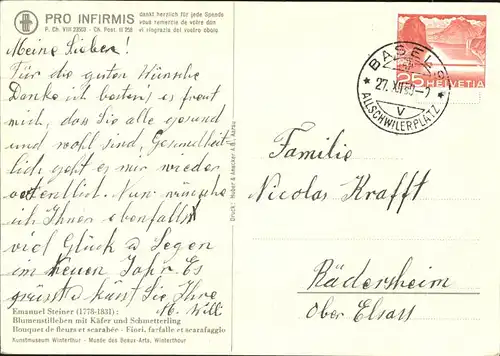 PRO INFIRMIS
dankt herzlich für jede Spende
vous remercie de votre don
vi ringrazia del vostro obolo
P. Ch. VIII 23503 - Ch. Post. II 258
Meine Lieben!
Für die guten Wünsche
Danke ich bestens es freut
mich, das Sie alle gesund
und wohl sind, Gesundheit-
lich geht es mir wieder
ordentlich. Nun wünsche
ich Ihnen ebenfalls
viel Glück & Segen
im neuen Jahr. Es
grüsst & küsst Sie Ihre
M. Will
Emanuel Steiner (1778-1831) :
Blumenstilleben mit Käfer und Schmetterling
Bouquet de fleurs et scarabée - Fiori, farfalle et scarafaggio
Kunstmuseum Winterthur - Musée des Beaux-Arts, Winterthour
Druck: Huber & Anacker A.G., Aarau
BASEL
27. XII
V
ALLSCHWILERPLATZ
25 HELVETIA
Familie
Nicolas Krafft
Rädersheim
Ober Elsass